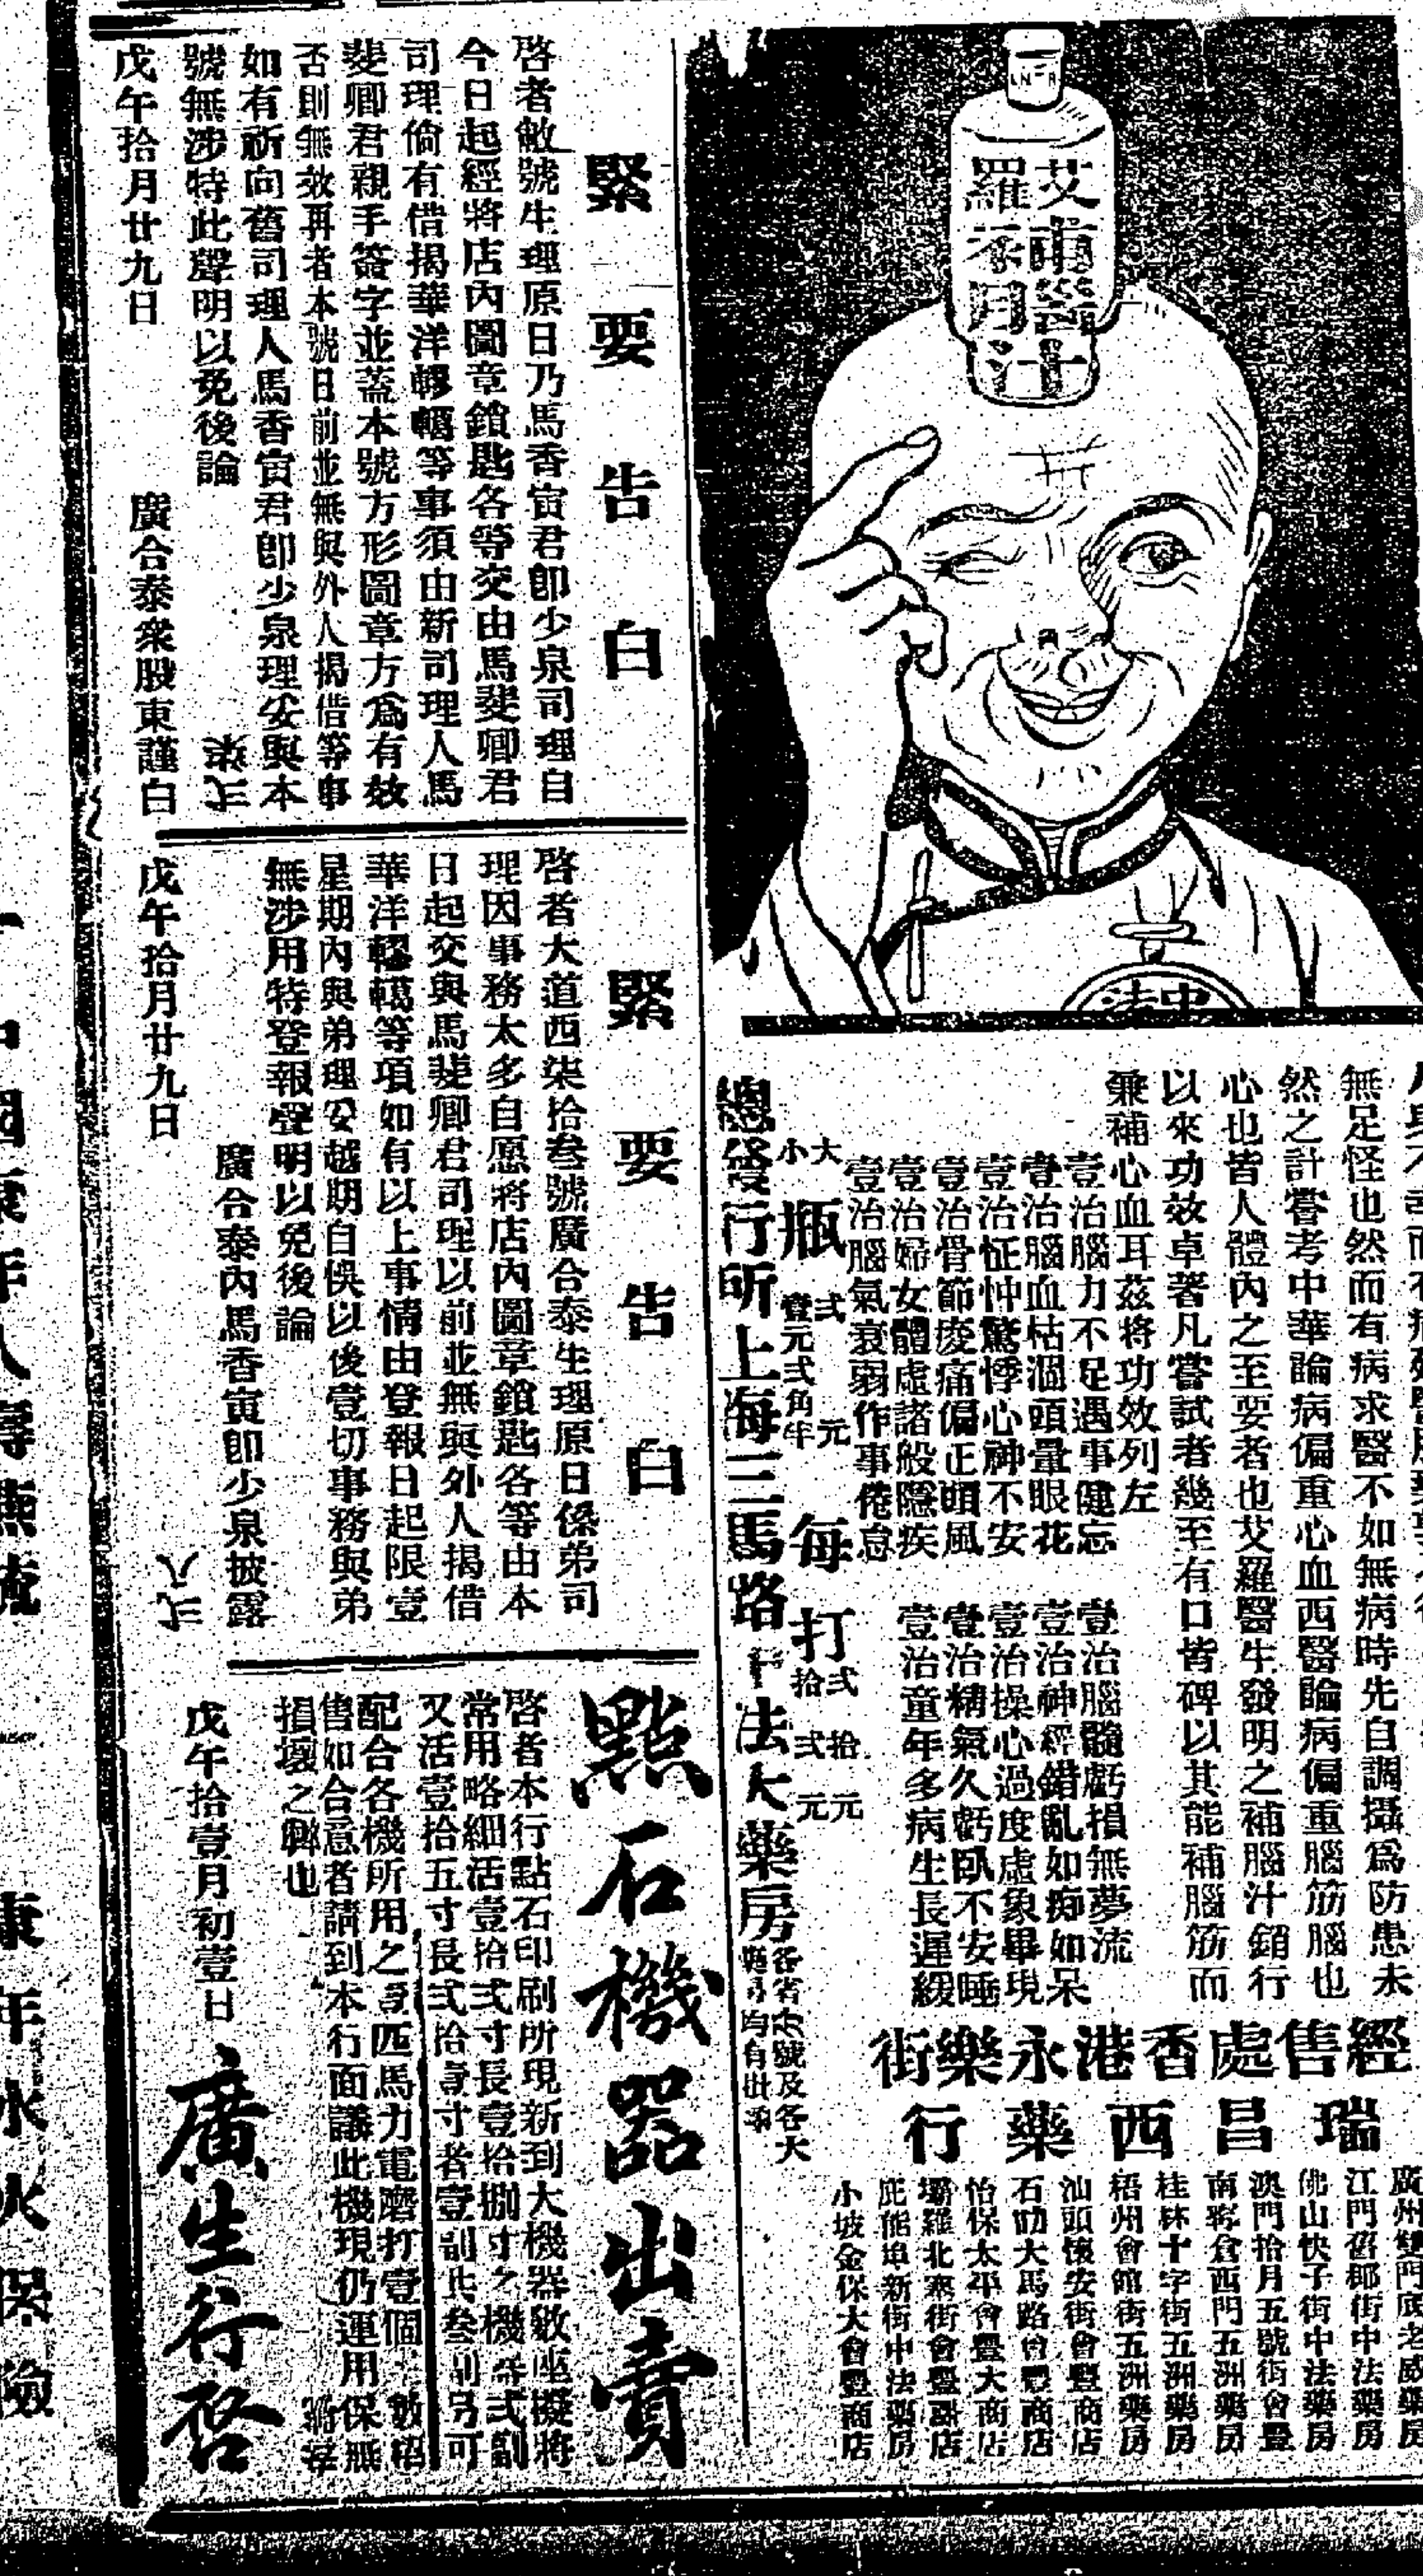 艾羅
補腦汁
中法
無足怪也然而有病求醫不如無病時先自調攝爲防患未
然之計嘗考中華論病偏重心血西醫論病偏重腦筋腦也
心也皆人體內之至要者也艾羅醫生發明之補腦汁銷行
以來功效卓著凡嘗試者幾至有口皆碑以其能補腦筋而
兼補心血耳茲將功效列左
壹治腦力不足遇事健忘
壹治腦血枯涸頭暈眼花
壹治怔忡驚悸心神不安
壹治骨節痠痛偏正頭風
壹治婦女體虛諸般隱疾
壹治腦氣衰弱作事倦怠
壹治腦髓虧損無夢流
壹治神經錯亂如痴如呆
壹治操心過度虛象畢現
壹治精氣久虧臥不安睡
壹治童年多病生長遲緩
大瓶弍元
小瓶壹元弍角半
每打弍拾元
拾弍元
總發行所上海三馬路中法大藥房
各省分號及各大
經售處香港永樂街
瑞昌西藥行
江門舊郡街中法藥房
佛山快子街中法藥房
澳門拾月五號街會豐
西門五洲藥房
桂林十字街五洲藥房
梧州會館街五洲藥房
汕頭懷安街會豐商店
石叻大馬路會豐商店
怡保太平會豐大商店
壩羅北寨街會豐商店
庇能埠新街中法藥房
小坡金保大會豐商店
緊要告白
啓者敝號生理原日乃馬香寅君卽少泉司理自
今日起經將店內圖章鎖匙各等交由馬斐卿君
司理倘有借揭華洋轇轕等事須由新司理人馬
斐卿君親手簽字並蓋本號方形圖章方爲有效
否則無效再者本號日前並無與外人揭借等事
如有祈向舊司理人馬香寅君卽少泉理妥與本
號無涉特此聲明以免後論
戊午拾月廿九日
廣合泰衆股東謹白
緊要告白
啓者大道西柒拾叁號廣合泰生理原日係弟司
理因事務太多自愿將店內圖章鎖匙各等由本
日起交與馬斐卿君司理以前並無與外人揭借
華洋轇轕等項如有以上事情由登報日起限壹
星期內與弟理妥越期自悞以後壹切事務與弟
無涉用特登報聲明以免後論
廣合泰內馬香寅卽少泉披露
戊午拾月廿九日
點石機器出賣
啓者本行點石印刷所現新到大機器數座擬將
常用略細活壹拾弍寸長壹拾捌寸之機器弍副
又活壹拾五寸長弍拾
配合各機所用之
匹馬力電磨打壹個
售如合意者請到本行面議此機現仍運用保無
損壞之弊也
戊午拾壹月初壹日
廣生行啓